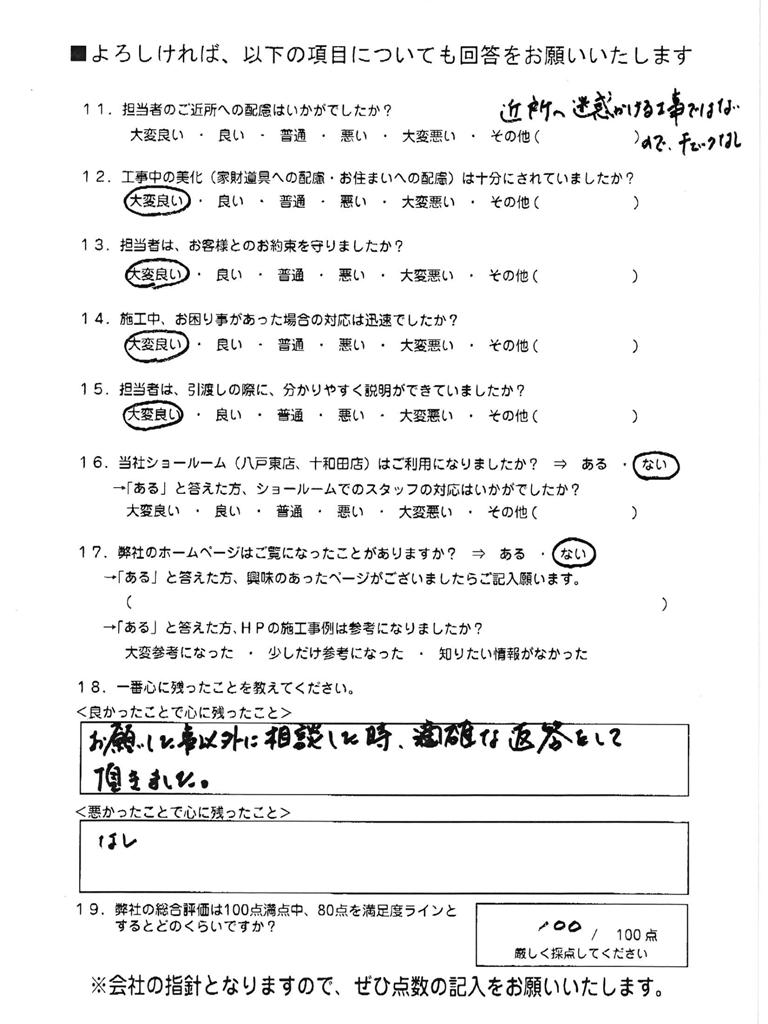 ■よろしければ、以下の項目についても回答をお願いいたします
11．担当者のご近所への配慮はいかがでしたか？
近所へ迷惑かける工事ではない
大変良い ・ 良い ・ 普通 ・ 悪い ・ 大変悪い ・ その他（　　　　　　）ので、チェックなし
12．工事中の美化（家財道具への配慮・お住まいへの配慮）は十分にされていましたか？
大変良い ・ 良い ・ 普通 ・ 悪い ・ 大変悪い ・ その他（　　　　　　）
13．担当者は、お客様とのお約束を守りましたか？
大変良い ・ 良い ・ 普通 ・ 悪い ・ 大変悪い ・ その他（　　　　　　）
14．施工中、お困り事があった場合の対応は迅速でしたか？
大変良い ・ 良い ・ 普通 ・ 悪い ・ 大変悪い ・ その他（　　　　　　）
15．担当者は、引渡しの際に、分かりやすく説明ができていましたか？
大変良い ・ 良い ・ 普通 ・ 悪い ・ 大変悪い ・ その他（　　　　　　）
16．当社ショールーム（八戸東店、十和田店）はご利用になりましたか？ ⇒ ある ・ ない
→「ある」と答えた方、ショールームでのスタッフの対応はいかがでしたか？
大変良い ・ 良い ・ 普通 ・ 悪い ・ 大変悪い ・ その他（　　　　　　）
17．弊社のホームページはご覧になったことがありますか？ ⇒ ある ・ ない
→「ある」と答えた方、興味のあったページがございましたらご記入願います。
（　　　　　　　　　　　　　　　　　　　　）
→「ある」と答えた方、HPの施工事例は参考になりましたか？
大変参考になった ・ 少しだけ参考になった ・ 知りたい情報がなかった
18．一番心に残ったことを教えてください。
＜良かったことで心に残ったこと＞
お願いした事以外に相談した時、適確な返答をして
頂きました。
＜悪かったことで心に残ったこと＞
なし
19．弊社の総合評価は100点満点中、80点を満足度ラインと
するとどのくらいですか？
100 / 100点
厳しく採点してください
※会社の指針となりますので、ぜひ点数の記入をお願いいたします。